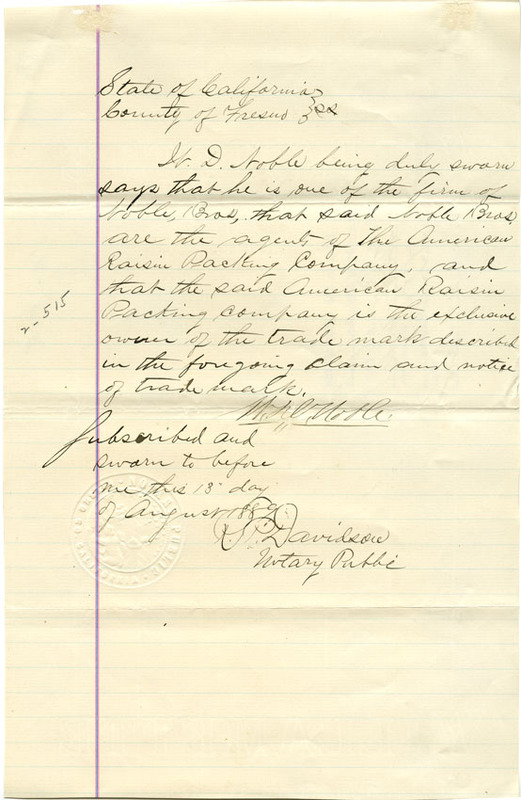 State of California
County of Fresno } ss
W. D. Noble being duly sworn
says that he is one of the firm of
Noble, Bros, that said Noble Bros.
are the agents of The American
Raisin Packing Company, and
that the said American Raisin
Packing company is the exclusive
owner of the trade mark described
in the foregoing claim and notice
of trade mark.
Noble.
Subscribed and
sworn to before
me this 13 day
of August 1889.
Davidson
Notary Public
2-515